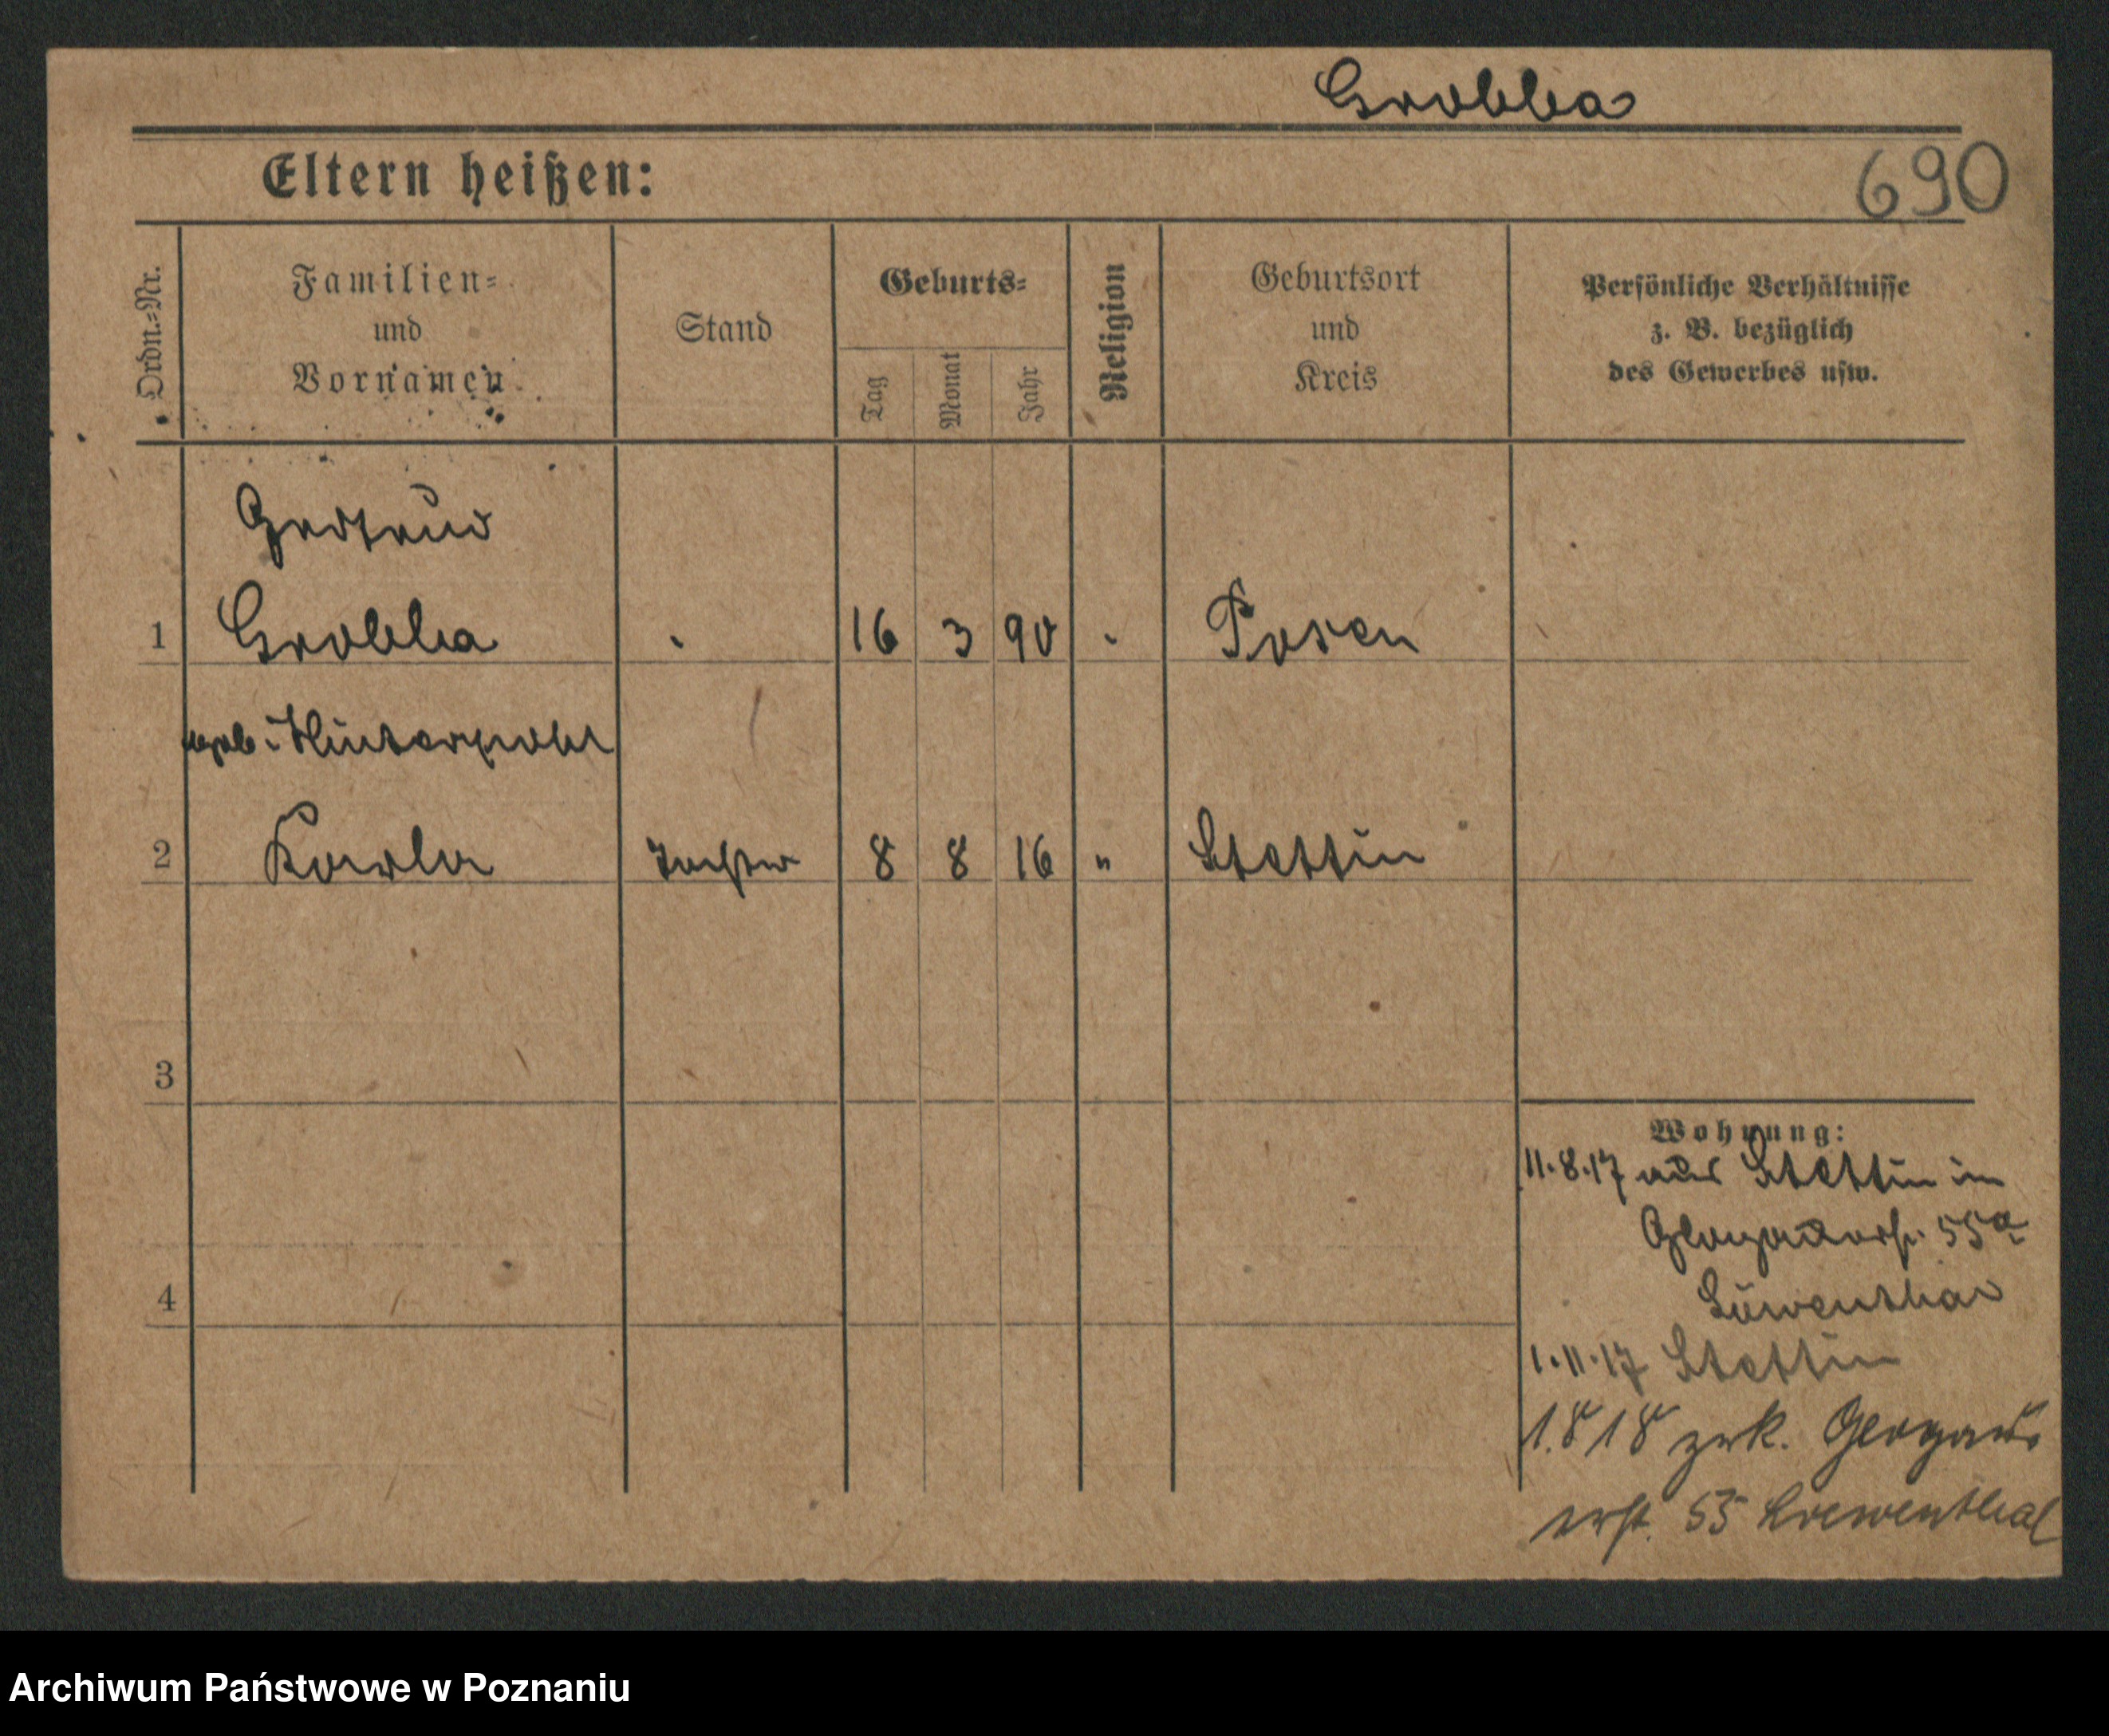 Grobba
Eltern heißen:
690
Ordn.-Nr.
Familien-
und
Vornamen
Stand
Geburts-
Tag
Monat
Jahr
Religion
Geburtsort
und
Kreis
Persönliche Verhältnisse
z. B. bezüglich
des Gewerbes usw.
Gertrud
1 Grobba 16 3 90 Posen
geb. Hinterpohl
2 Tochter 8 8 16 " Stettin
3
4
Wohnung:
11.8.17 aus Stettin in
55a
Löwenthal
1.11.17 Stettin
1.8 18 zrk. Glogau
erst. 55 Loewenthal
Archiwum Państwowe w Poznaniu